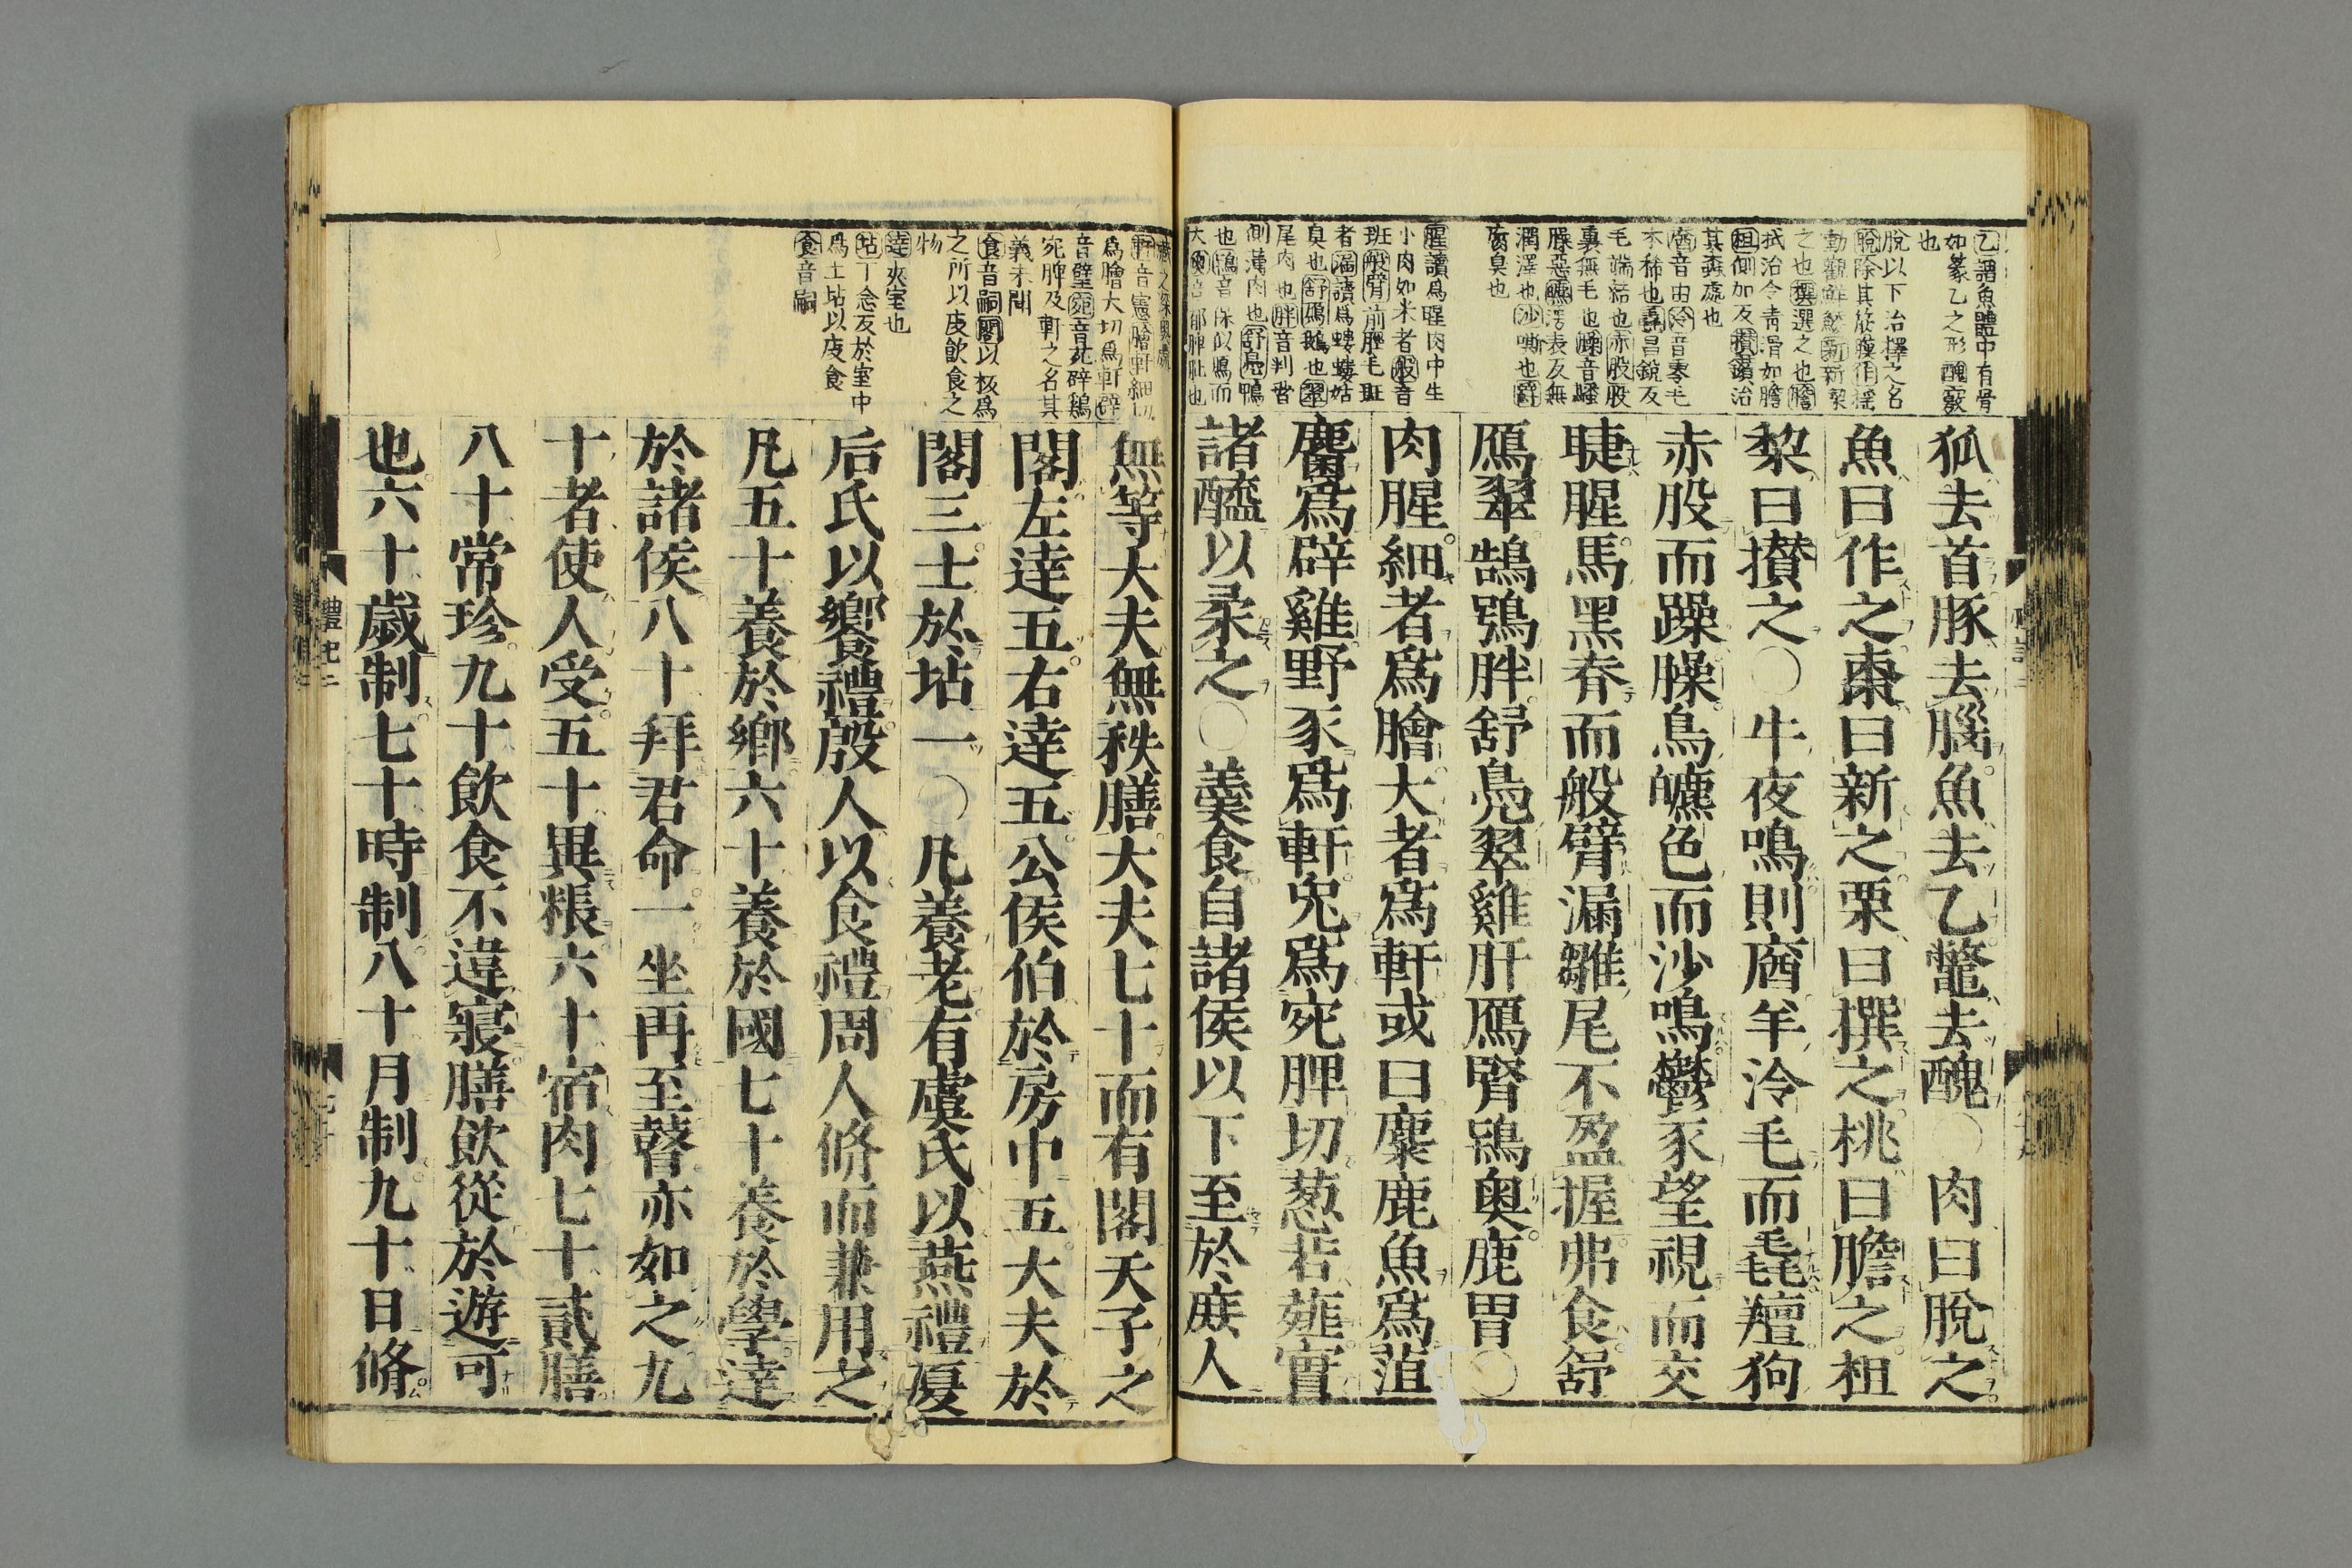 乙謂魚體中有骨
如篆乙之形醜竅
也
脫以下治擇之名
脫除其筋膜作搖
動觀鮮餒新新潔
之也撰選之也膽
拭治令青滑如膽
柤側加反攢鑽治
其蟲處也
庮音由泠音零毛
本稀也毳昌銳反
毛端結也赤股股
裏無毛也躁音騷
臊惡皫漂表反無
潤澤也沙嘶也鬱
腐臭也
腥讀為腥肉中生
小肉如米者般音
班般臂前脛毛斑
者漏讀為螻螻姑
臭也舒鴈鵝也翠
尾肉也胖音判脅
側薄肉也舒鳧鴨
也鴇音保似鴈而
大奧音郁脾肶也
狐去首豚去腦魚去乙鼈去醜○肉曰脫之
魚曰作之棗曰新之栗曰撰之桃曰膽之柤
棃曰攢之○牛夜鳴則庮羊泠毛而毳羶狗
赤股而躁臊鳥皫色而沙鳴鬱豕望視而交
睫腥馬黑脊而般臂漏雛尾不盈握弗食舒
鴈翠鵠鴞胖舒鳧翠雞肝鴈腎鴇奥鹿胃○
肉腥細者爲膾大者爲軒或曰麋鹿魚爲菹
麕爲辟雞野豕爲軒兎爲宛脾切葱若薤實
諸醯以柔之○羹食自諸侯以下至於庶人
軒音憲膾軒細切
為膾大切為軒辟
音壁宛音苑辟鷄
宛脾及軒之名其
義未聞
食音嗣閣以板為
之所以庋飲食之
物
達夾室也
坫丁念反於室中
為土坫以庋食
食音嗣
無等大夫無秩膳大夫七十而有閣天子之
閣左達五右達五公侯伯於房中五大夫於
閣三士於坫一○凡養老有虞氏以燕禮夏
后氏以饗禮殷人以食禮周人脩而兼用之
凡五十養於鄉六十養於國七十養於學達
於諸侯八十拜君命一坐再至瞽亦如之九
十者使人受五十異粻六十宿肉七十貳膳
八十常珍九十飲食不違寢膳飲從於遊可
也六十歲制七十時制八十月制九十日脩
禮記二